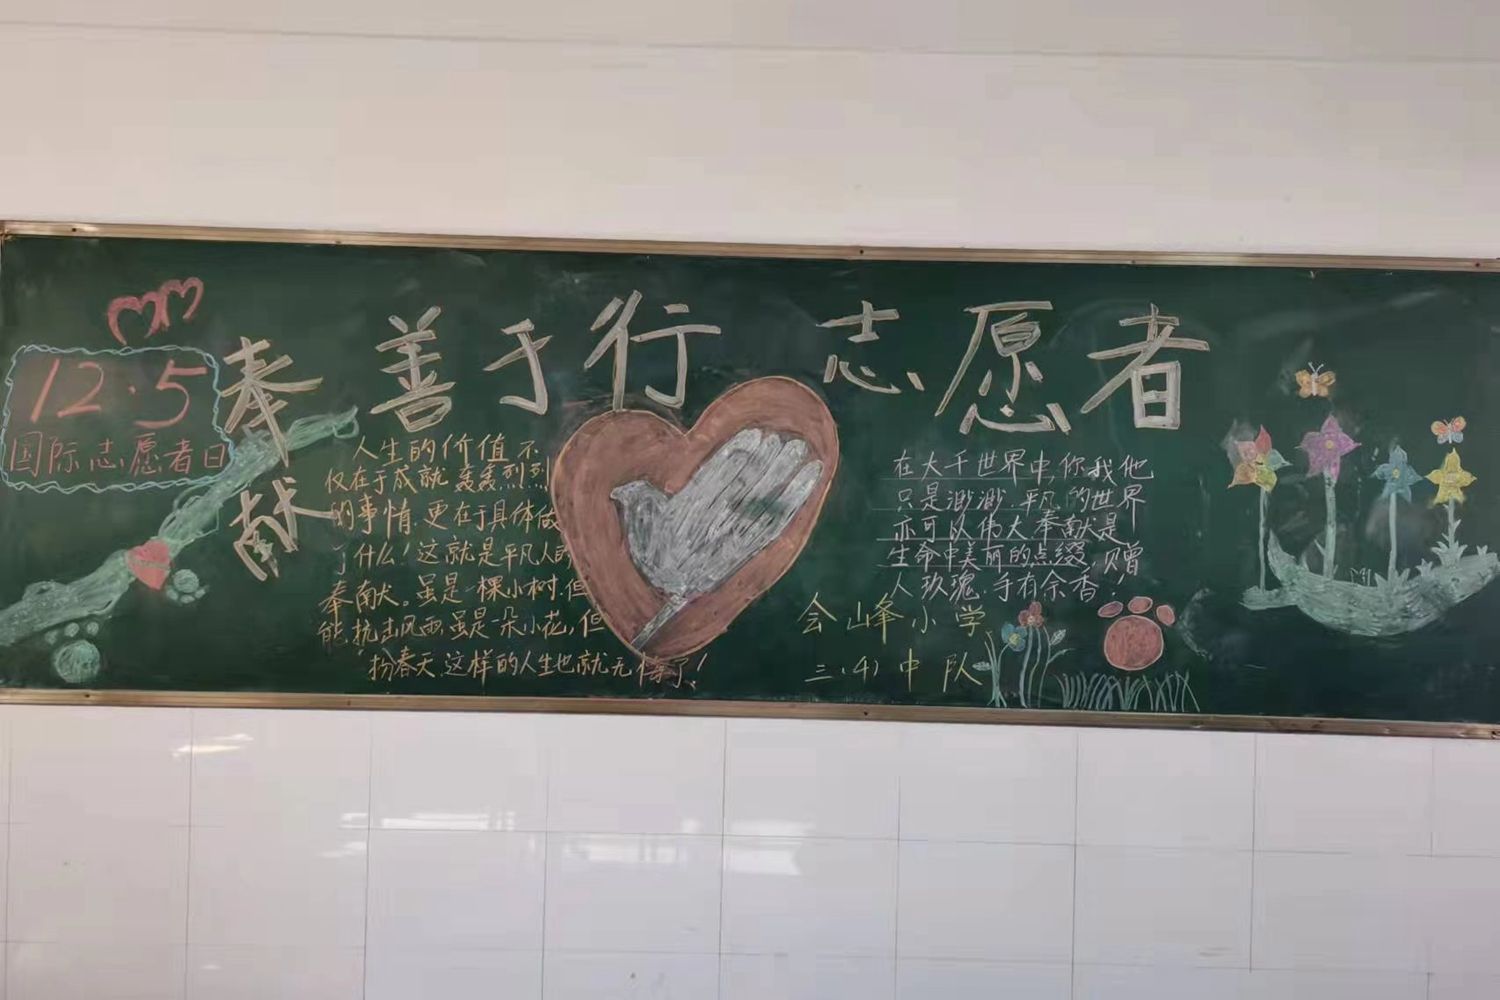 12·5
国际志愿者日
奉献
善于行 志愿者
人生的价值不
仅在于成就轰轰烈烈
的事情,更在于具体做
了什么!这就是平凡人的
奉献。虽是一棵小树,但
能抗击风雨,虽是一朵小花,但
扮春天,这样的人生也就无悔了!
在大千世界中,你我他
只是渺渺,平凡的世界
亦可以伟大,奉献是
生命中美丽的点缀,赠
人玫瑰,手有余香!
会峰小学
三.(4)中队